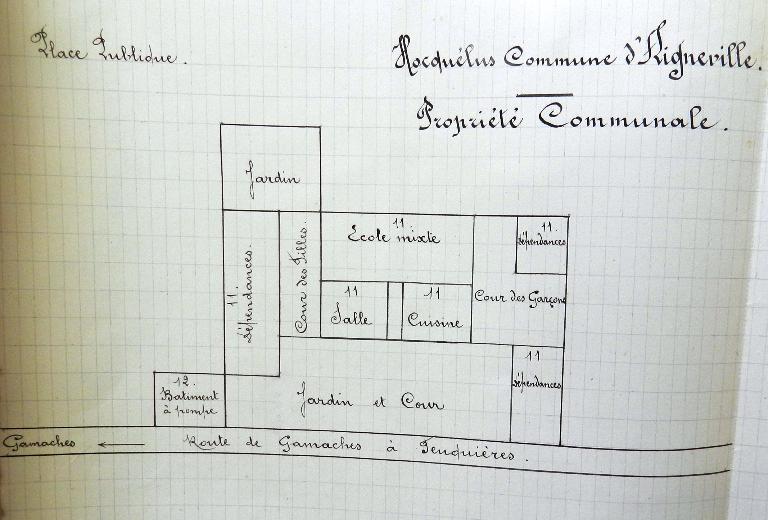 Place Publique.
Hocquélus Commune d'Aigneville.
Propriété Communale.
Jardin
11.
Dépendances.
Cour des Filles.
11
Ecole mixte
11
Salle
11
Cuisine
11.
Dépendances
Cour des Garçons
11
Dépendances
12.
Batiment
à pompe
Jardin et Cour
Gamaches
Route de Gamaches à Feuquières.